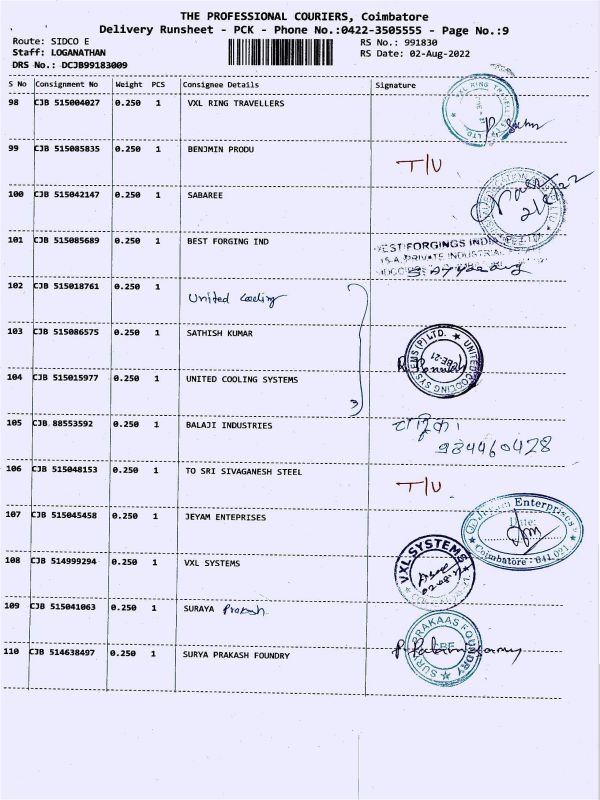 THE PROFESSIONAL COURIERS, Coimbatore
Delivery Runsheet - PCK - Phone No.:0422-3505555 - Page No.:9
Route: SIDCO E RS No.: 991830
Staff: LOGANATHAN RS Date: 02-Aug-2022
DRS No.: DCJB99183009
S No Consignment No Weight PCS Consignee Details Signature
98 CJB 515004027 0.250 1 VXL RING TRAVELLERS
99 CJB 515085835 0.250 1 BENJMIN PRODU T/U
100 CJB 515042147 0.250 1 SABAREE 2/8/22
101 CJB 515085689 0.250 1 BEST FORGING IND
102 CJB 515018761 0.250 1 United Cooling
103 CJB 515086575 0.250 1 SATHISH KUMAR
UNITED COOLING SYSTEMS (P) LTD. CBE-21
104 CJB 515015977 0.250 1 UNITED COOLING SYSTEMS
105 CJB 88553592 0.250 1 BALAJI INDUSTRIES
106 CJB 515048153 0.250 1 TO SRI SIVAGANESH STEEL T/U
107 CJB 515045458 0.250 1 JEYAM ENTEPRISES
Jeyam Enterprises
Date:
Coimbatore - 641 021
108 CJB 514999294 0.250 1 VXL SYSTEMS
VXL SYSTEMS
109 CJB 515041063 0.250 1 SURAYA Prakash
110 CJB 514638497 0.250 1 SURYA PRAKASH FOUNDRY
SURYA PRAKAAS FOUNDRY CBE